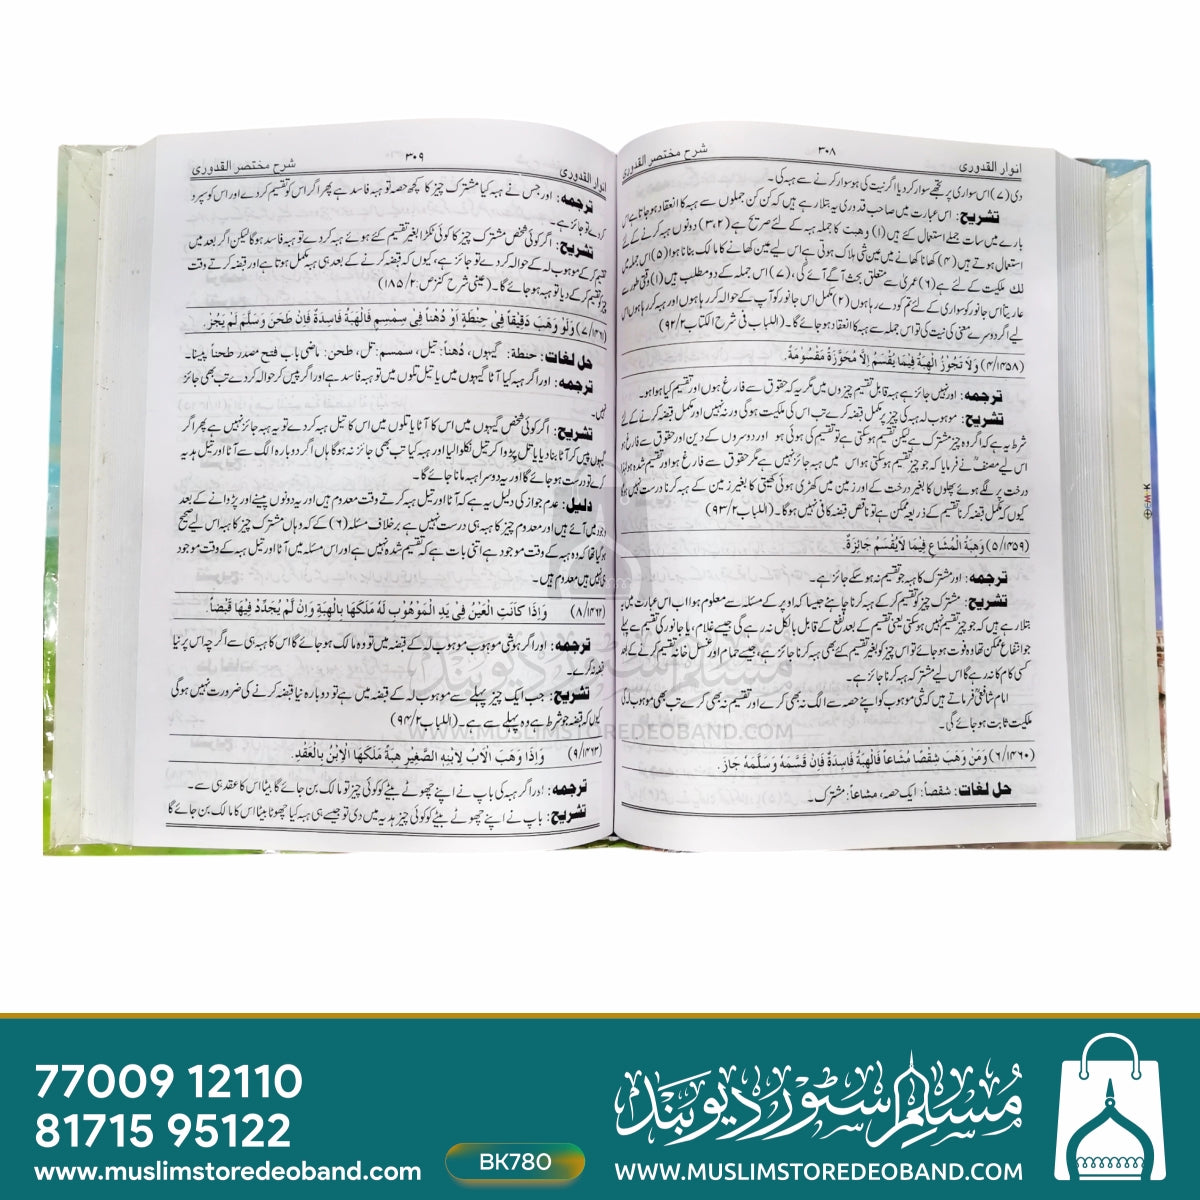 انوار القدوری ۳۰۸ شرح مختصر القدوری
دی (۷) اس سواری پر تجھے سوار کر دیا اگر نیت کی ہو سوار کرنے سے ہبہ کی۔
تشریح: اس عبارت میں صاحب قدوری یہ بتلا رہے ہیں کہ کن کن جملوں سے ہبہ کا انعقاد ہو جاتا ہے اس
بارے میں سات جملے استعمال کئے ہیں (۱) وهبت کا جملہ ہبہ کے لئے صریح ہے (۳،۲) دونوں ہبہ کرنے کے لئے
استعمال ہوتے ہیں (۴) کھانا کھانے میں عین شی ہلاک ہوتی ہے اس لیے عین کھانے کا مالک بنانا ہوا (۵) اس جملہ میں
لك ملکیت کے لئے ہے (۶) عمریٰ سے متعلق بحث آگے آئے گی، (۷) اس جملہ کے دو مطلب ہیں (۱) وقتی طور سے
عاریتاً اس جانور کو سواری کے لئے تم کو دے رہا ہوں (۲) مکمل اس جانور کو آپ کے حوالہ کر رہا ہوں اور ہبہ کر رہا ہوں اس
لیے اگر دوسرے معنی کی نیت کی تو اس جملہ سے ہبہ کا انعقاد ہو جائے گا۔ (اللباب فی شرح الکتاب ۹۲/۲)
(۴/۱۴۵۸) وَلَا تَجُوْزُ الْهِبَةُ فِيمَا يُقْسَمُ اِلَّا مُحَوَّزَةً مَقْسُوْمَةً.
ترجمه: اور نہیں جائز ہے ہبہ قابل تقسیم چیزوں میں مگر یہ کہ حقوق سے فارغ ہوں اور تقسیم کیا ہوا ہو۔
تشریح: موہوب لہ ہبہ کی چیز پر مکمل قبضہ کرے تب اس کی ملکیت ہو گی ورنہ نہیں اور مکمل قبضہ کرنے کے لئے
شرط یہ ہے کہ اگر وہ چیز مشترک ہے لیکن تقسیم ہو سکتی ہے تو تقسیم کی ہوئی ہو اور دوسروں کے دین اور حقوق سے فارغ ہو
اس لیے مصنف نے فرمایا کہ جو چیز تقسیم ہو سکتی ہو اس میں ہبہ جائز نہیں ہے مگر حقوق سے فارغ ہو اور تقسیم شدہ ہو لہذا
درخت پر لگے ہوئے پھلوں کا بغیر درخت کے اور زمین میں کھڑی ہوئی کھیتی کا بغیر زمین کے ہبہ کرنا درست نہیں ہوگا
کیوں کہ مکمل قبضہ کرنا تقسیم کے ذریعہ ممکن ہے تو ناقص قبضہ کافی نہیں ہوگا۔ (اللباب ۹۳/۲)
(۵/۱۴۵۹) وَهِبَةُ الْمُشَاعِ فِيمَا لَايُقْسَمُ جَائِزَةٌ.
ترجمه: اور مشترک کا ہبہ جو تقسیم نہ ہو سکے جائز ہے۔
تشریح: مشترک چیز کو تقسیم کر کے ہبہ کرنا چاہئے جیسا کہ اوپر کے مسئلہ سے معلوم ہوا اب اس عبارت میں یہ
بتلا رہے ہیں کہ جو چیز تقسیم نہیں ہو سکتی یعنی تقسیم کے بعد نفع کے قابل بالکل نہ رہے گی جیسے غلام، یا جانور کی تقسیم سے پہلے
جو انتفاع ممکن تھا وہ فوت ہو جائے تو اس چیز کو بغیر تقسیم کئے بھی ہبہ کرنا جائز ہے، جیسے حمام اور غسل خانہ تقسیم کرنے کے بعد
کسی کام کا نہ رہے گا اس لیے مشترک ہبہ کرنا جائز ہے۔
امام شافعیؒ فرماتے ہیں کہ شی موہوب کو اپنے حصہ سے الگ نہ بھی کرے اور تقسیم نہ بھی کرے تب بھی موہوب لہ کی
ملکیت ثابت ہو جائے گی۔
(۶/۱۴۶۰) وَمَنْ وَهَبَ شِقْصًا مُشَاعاً فَالْهِبَةُ فَاسِدَةٌ فَاِنْ قَسَّمَهُ وَسَلَّمَهُ جَازَ.
حل لغات: شقصاً: ایک حصہ، مشاعاً: مشترک۔
انوار القدوری ۳۰۹ شرح مختصر القدوری
ترجمه: اور جس نے ہبہ کیا مشترک چیز کا کچھ حصہ تو ہبہ فاسد ہے پھر اگر اس کو تقسیم کر دے اور اس کو سپرد
کر دے تو جائز ہے۔
تشریح: اگر کوئی شخص مشترک چیز کا کوئی ٹکڑا بغیر تقسیم کئے ہوئے ہبہ کر دے تو ہبہ فاسد ہوگا لیکن اگر بعد میں
تقسیم کر کے موہوب لہ کے حوالہ کر دے تو جائز ہے، کیوں کہ قبضہ کرنے کے بعد ہی ہبہ مکمل ہوتا ہے اور قبضہ کرتے وقت
تقسیم کر کے دیا تو ہبہ ہو جائے گا۔ (عینی شرح کنز ص: ۱۸۵/۲)
(۷/۱۴۶۱) وَلَوْ وَهَبَ دَقِيْقاً فِيْ حِنْطَةٍ اَوْ دُهْناً فِيْ سِمْسِمٍ فَالْهِبَةُ فَاسِدَةٌ فَاِنْ طَحَنَ وَسَلَّمَ لَمْ يَجُزْ.
حل لغات: حنطة: گیہوں، دُهناً: تیل، سمسم: تل، طحن: ماضی باب فتح مصدر طحناً پیسنا۔
ترجمه: اور اگر ہبہ کیا آٹا گیہوں میں یا تیل تلوں میں تو ہبہ فاسد ہے اور اگر پیس کر حوالہ کر دے تب بھی جائز
نہیں۔
تشریح: اگر کوئی شخص گیہوں میں اس کا آٹا یا تلوں میں اس کا تیل ہبہ کر دے تو یہ ہبہ جائز نہیں ہے پھر اگر
گیہوں پیس کر آٹا بنا دیا یا تل پڑوا کر تیل نکلوا لیا اور ہبہ کیا تب بھی جائز نہ ہوگا ہاں اگر دوبارہ الگ سے آٹا اور تیل ہدیہ
کرے تو درست ہو جائے گا اور یہ دوسرا ہبہ مانا جائے گا۔
دلیل: عدم جواز کی دلیل یہ ہے کہ آٹا اور تیل ہبہ کرتے وقت معدوم ہیں اور یہ دونوں پیسنے اور پڑوانے کے بعد
وجود میں آئے ہیں اور معدوم چیز کا ہبہ ہی درست نہیں ہے برخلاف مسئلہ (۶) کے کہ وہاں مشترک چیز کا ہبہ اس لیے صحیح
ہو گیا تھا کہ وہ ہبہ کے وقت موجود ہے اتنی بات ہے کہ تقسیم شدہ نہیں ہے اور اس مسئلہ میں آٹا اور تیل ہبہ کے وقت موجود
ہی نہیں ہیں معدوم ہیں۔
(۸/۱۴۶۲) وَاِذَا كَانَتِ الْعَيْنُ فِيْ يَدِ الْمَوْهُوْبِ لَهُ مَلَكَهَا بِالْهِبَةِ وَاِنْ لَّمْ يُجَدِّدْ فِيْهَا قَبْضاً.
ترجمه: اور اگر ہو شی موہوب موہوب لہ کے قبضہ میں تو وہ مالک ہو جائے گا اس کا ہبہ ہی سے اگر چہ اس پر نیا
قبضہ نہ کرے۔
تشریح: جب ایک چیز پہلے سے موہوب لہ کے قبضہ میں ہے تو دوبارہ نیا قبضہ کرنے کی ضرورت نہیں ہوگی
کیوں کہ قبضہ جو شرط ہے وہ پہلے سے ہے۔ (اللباب ۹۴/۲)
(۹/۱۴۶۳) وَاِذَا وَهَبَ الْاَبُ لِاِبْنِهِ الصَّغِيْرِ هِبَةً مَلَكَهَا الْاِبْنُ بِالْعَقْدِ.
ترجمه: اور اگر ہبہ کی باپ نے اپنے چھوٹے بیٹے کو کوئی چیز تو مالک بن جائے گا بیٹا اس کا عقد ہی سے۔
تشریح: باپ نے اپنے چھوٹے بیٹے کو کوئی چیز ہدیہ میں دی تو جیسے ہی ہبہ کیا چھوٹا بیٹا اس کا مالک بن جائے گا
مسلم سٹور دیوبند
WWW.MUSLIMSTOREDEOBAND.COM
77009 12110
81715 95122
www.muslimstoredeoband.com
BK780
مسلم سٹور دیوبند
WWW.MUSLIMSTOREDEOBAND.COM